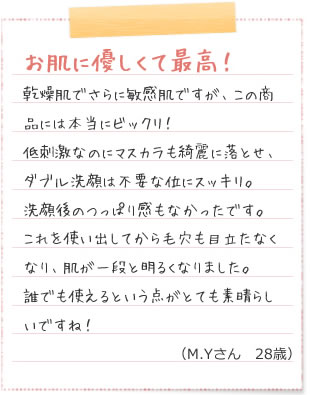 お肌に優しくて最高！
乾燥肌でさらに敏感肌ですが、この商
品には本当にビックリ！
低刺激なのにマスカラも綺麗に落とせ、
ダブル洗顔は不要な位にスッキリ。
洗顔後のつっぱり感もなかったです。
これを使い出してからも穴も目立たなく
なり、肌が一段と明るくなりました。
誰でも使えるという点がとても素晴らし
いですね！
（M.Yさん　28歳）